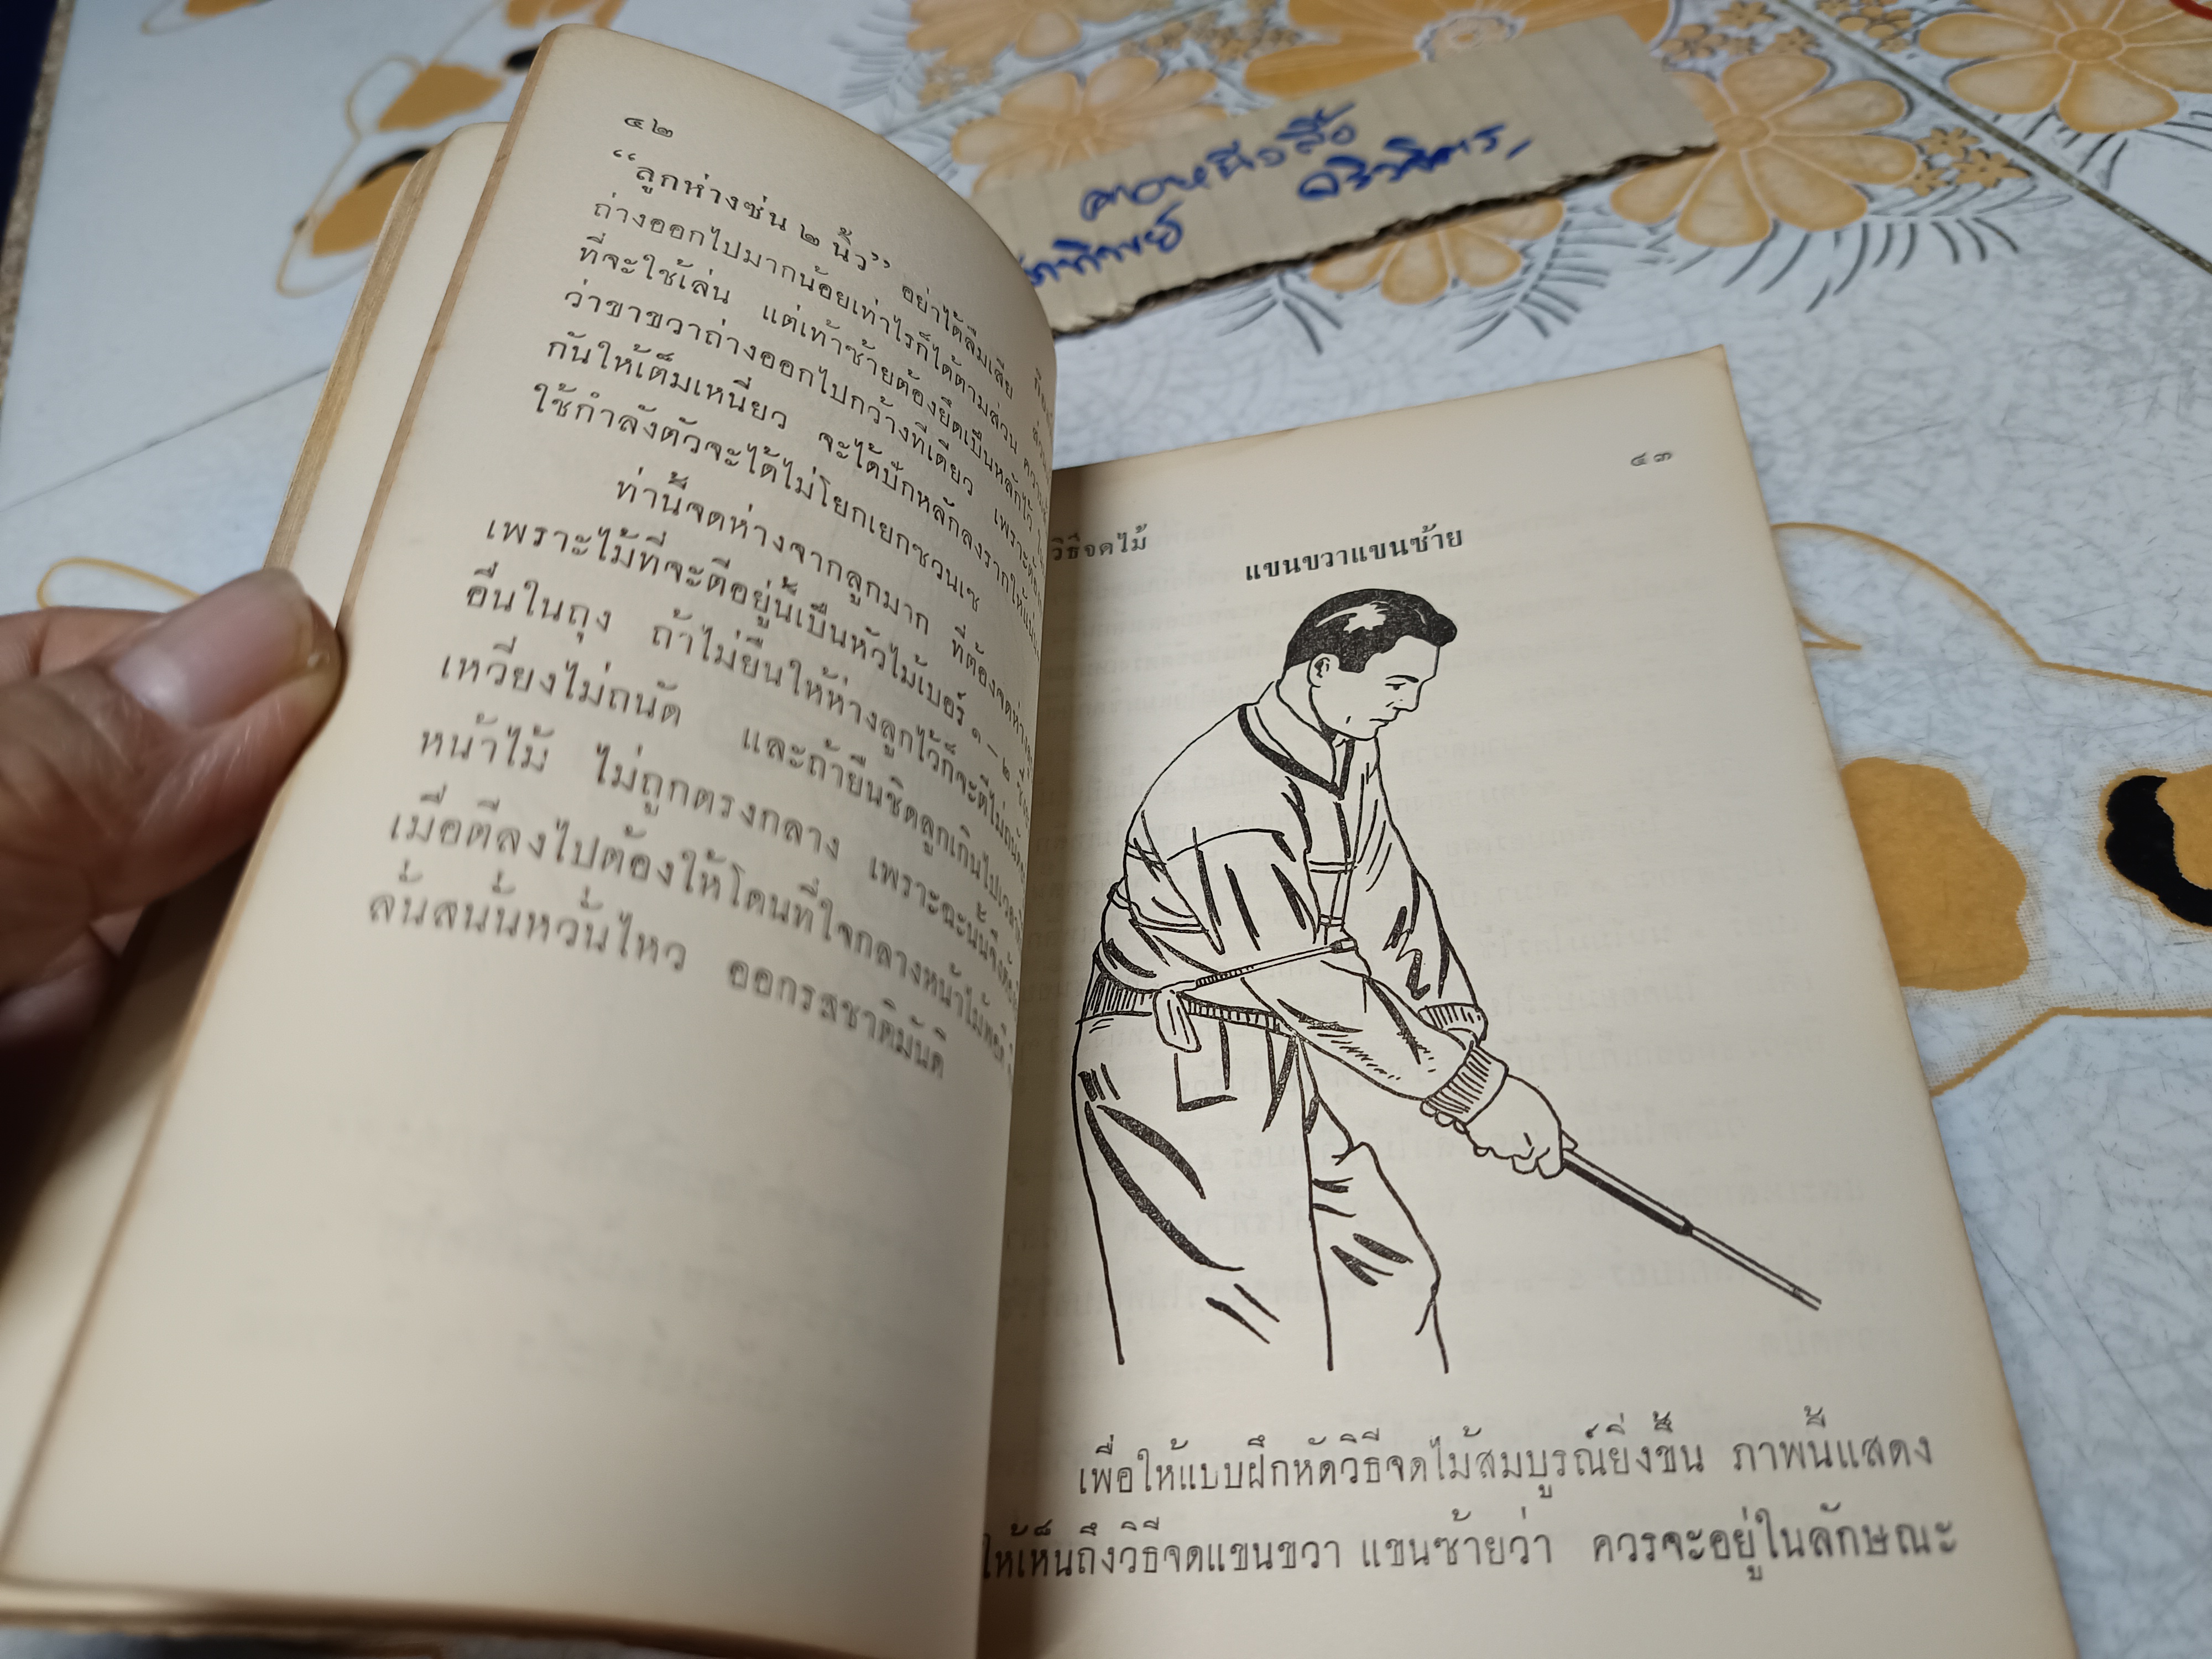 ๔๒
“ลูกห่างซ่น ๒ นิ้ว” อย่าได้ลืมเสีย
ถ่างออกไปมากน้อยเท่าไรก็ได้ตามส่วน
ที่จะใช้เล่น แต่เท้าซ้ายต้องยึดเป็นหลักไว้
ว่าขาขวาถ่างออกไปกว้างทีเดียว เพราะต้อง
กันให้เต็มเหนี่ยว จะได้ปักหลักลงรากให้แน่น
ใช้กำลังตัวจะได้ไม่โยกเยกซวนเซ
ท่านี้จดห่างจากลูกมาก ที่ต้องจดห่าง
เพราะไม้ที่จะตีอยู่นี้เป็นหัวไม้เบอร์ ๑ - ๒
อื่นในถุง ถ้าไม่ยืนให้ห่างลูกไว้ก็จะตีไม่ถนัด
เหวี่ยงไม่ถนัด และถ้ายืนชิดลูกเกินไปเวลา
หน้าไม้ ไม่ถูกตรงกลาง เพราะฉะนั้นจึงต้อง
เมื่อตีลงไปต้องให้โดนที่ใจกลางหน้าไม้พอดี
ลั่นสนั่นหวั่นไหว ออกรสชาติมันดี
๔๓
วิธีจดไม้
แขนขวาแขนซ้าย
เพื่อให้แบบฝึกหัดวิธีจดไม้สมบูรณ์ยิ่งขึ้น ภาพนี้แสดง
ให้เห็นถึงวิธีจดแขนขวา แขนซ้ายว่า ควรจะอยู่ในลักษณะ